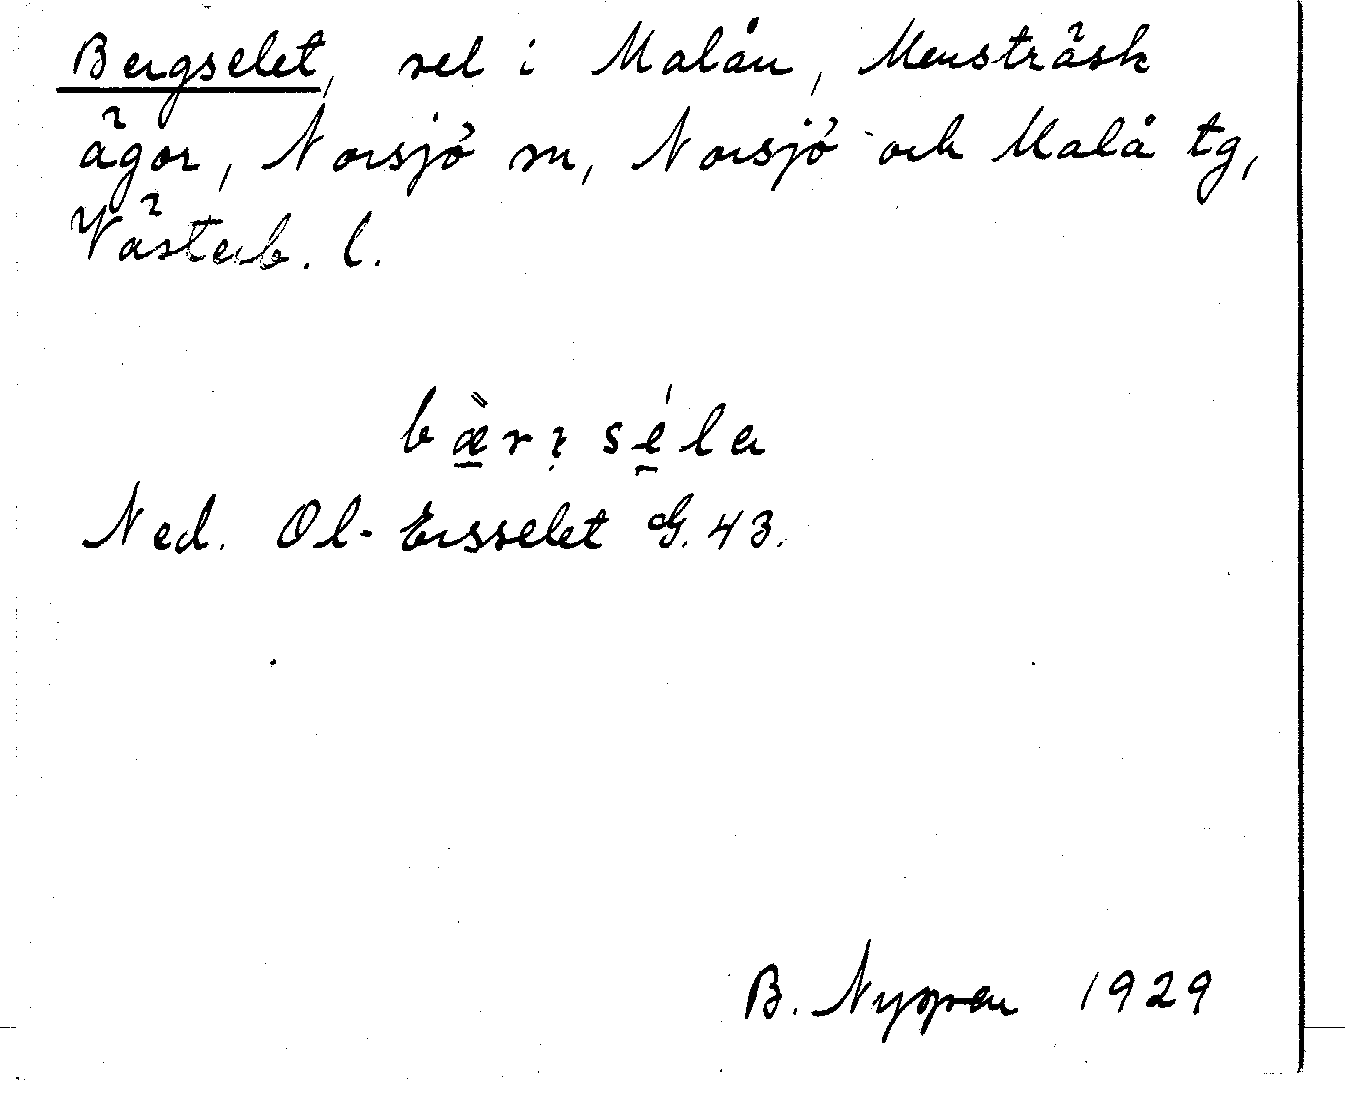 Bergselet, sel i Malån, Mensträsk
ägor, Norsjö sn, Norsjö och Malå tg,
Västerb. l.
bæ̀rʒ séla
Ned. Ol-Ersselet G. 43.
B. Nygren 1929